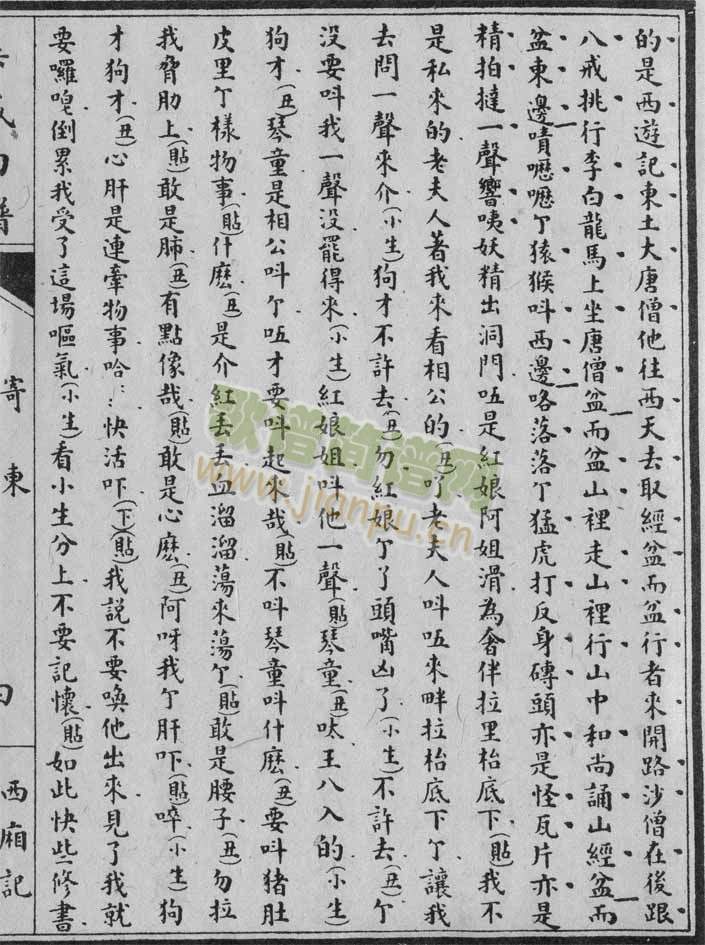 的是西遊記東土大唐僧他往西天去取經盆而盆行者來開路沙僧在後跟
八戒挑行李白龍馬上坐唐僧盆而盆山裡走山裡行山中和尚誦山經盆而
盆東邊嘖嚦嚦丫猿猴呌西邊咯落落丫猛虎打反身磚頭亦是怪瓦片亦是
精拍撻一聲響咦妖精出洞門唔是紅娘阿姐滑為奢伴拉里枱底下(貼)我不
是私來的老夫人著我來看相公的(丑)吖老夫人呌唔來畔拉枱底下丫讓我
去問一聲來介(小生)狗才不許去(丑)勿紅娘丫了頭嘴凶了(小生)不許去(丑)丫
沒要呌我一聲沒罷得來(小生)紅娘姐呌他一聲(貼)琴童(丑)呔王八入的(小生)
狗才(丑)琴童是相公呌丫唔才要呌起來哉(貼)不呌琴童呌什麽(丑)要呌猪肚
皮里丫樣物事(貼)什麽(丑)是介紅丢丢血溜溜蕩來蕩丫(貼)敢是腰子(丑)勿拉
我脅肋上(貼)敢是肺(丑)有點像哉(貼)敢是心麽(丑)阿呀我丫肝吓(貼)啐(小生)狗
才狗才(丑)心肝是連牽物事哈:快活吓(下)(貼)我說不要喚他出來見了我就
要囉唣倒累我受了這場嘔氣(小生)看小生分上不要記懷(貼)如此快些修書
寄柬
西廂記
歌谱简谱网
www.jianpu.cn